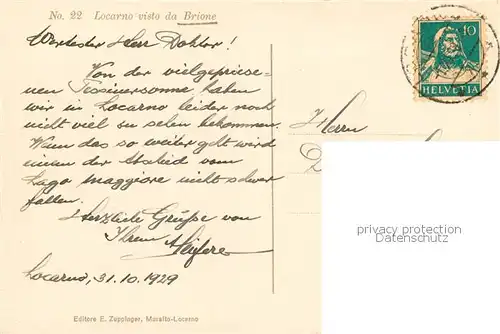 No. 22 Locarno visto da Brione
Wertester Herr Doktor!
Von der vielgepriese-
nen Tessinersonne haben
wir in Locarno leider noch
nicht viel zu sehen bekommen.
Wenn das so weiter geht wird
einem der Abschied vom
Lago maggiore nicht schwer
fallen.
Herzliche Grüsse von
Ihrem
Locarno, 31.10.1929
Editore E. Zuppinger, Muralto-Locarno
10
HELVETIA
Herrn
D
privacy protection
Datenschutz